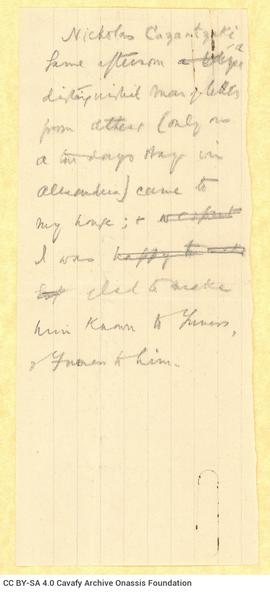 Nicholas Cazantzaki
Same afternoon a
distinguished man of letters
from Athens (only on
a two days stay in
Alexandria) came to
my house; &
I was happy to
glad to make
him known to Furness,
& Furness to him.
CC BY-SA 4.0 Cavafy Archive Onassis Foundation